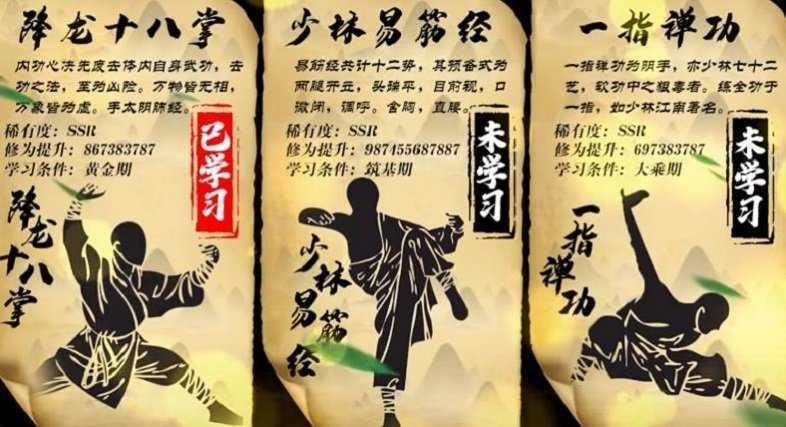 降龙十八掌
内功心决先废去体内自身武功，去
功之法，至为凶险。万物皆无相，
万象皆为虚。手太阴肺经。
稀有度：SSR
修为提升：867383787
学习条件：黄金期
已学习
降龙十八掌
少林易筋经
易筋经共计十二势，其预备式为
两腿开立，头端平，目前视，口
微闭，调呼。含胸，直腰。
稀有度：SSR
修为提升：987455687887
学习条件：筑基期
未学习
少林易筋经
一指禅功
一指禅功为阴手，亦少林七十二
艺，软功中之狠毒者。练全功于
一指，如少林江南著名。
稀有度：SSR
修为提升：697383787
学习条件：大乘期
未学习
一指禅功